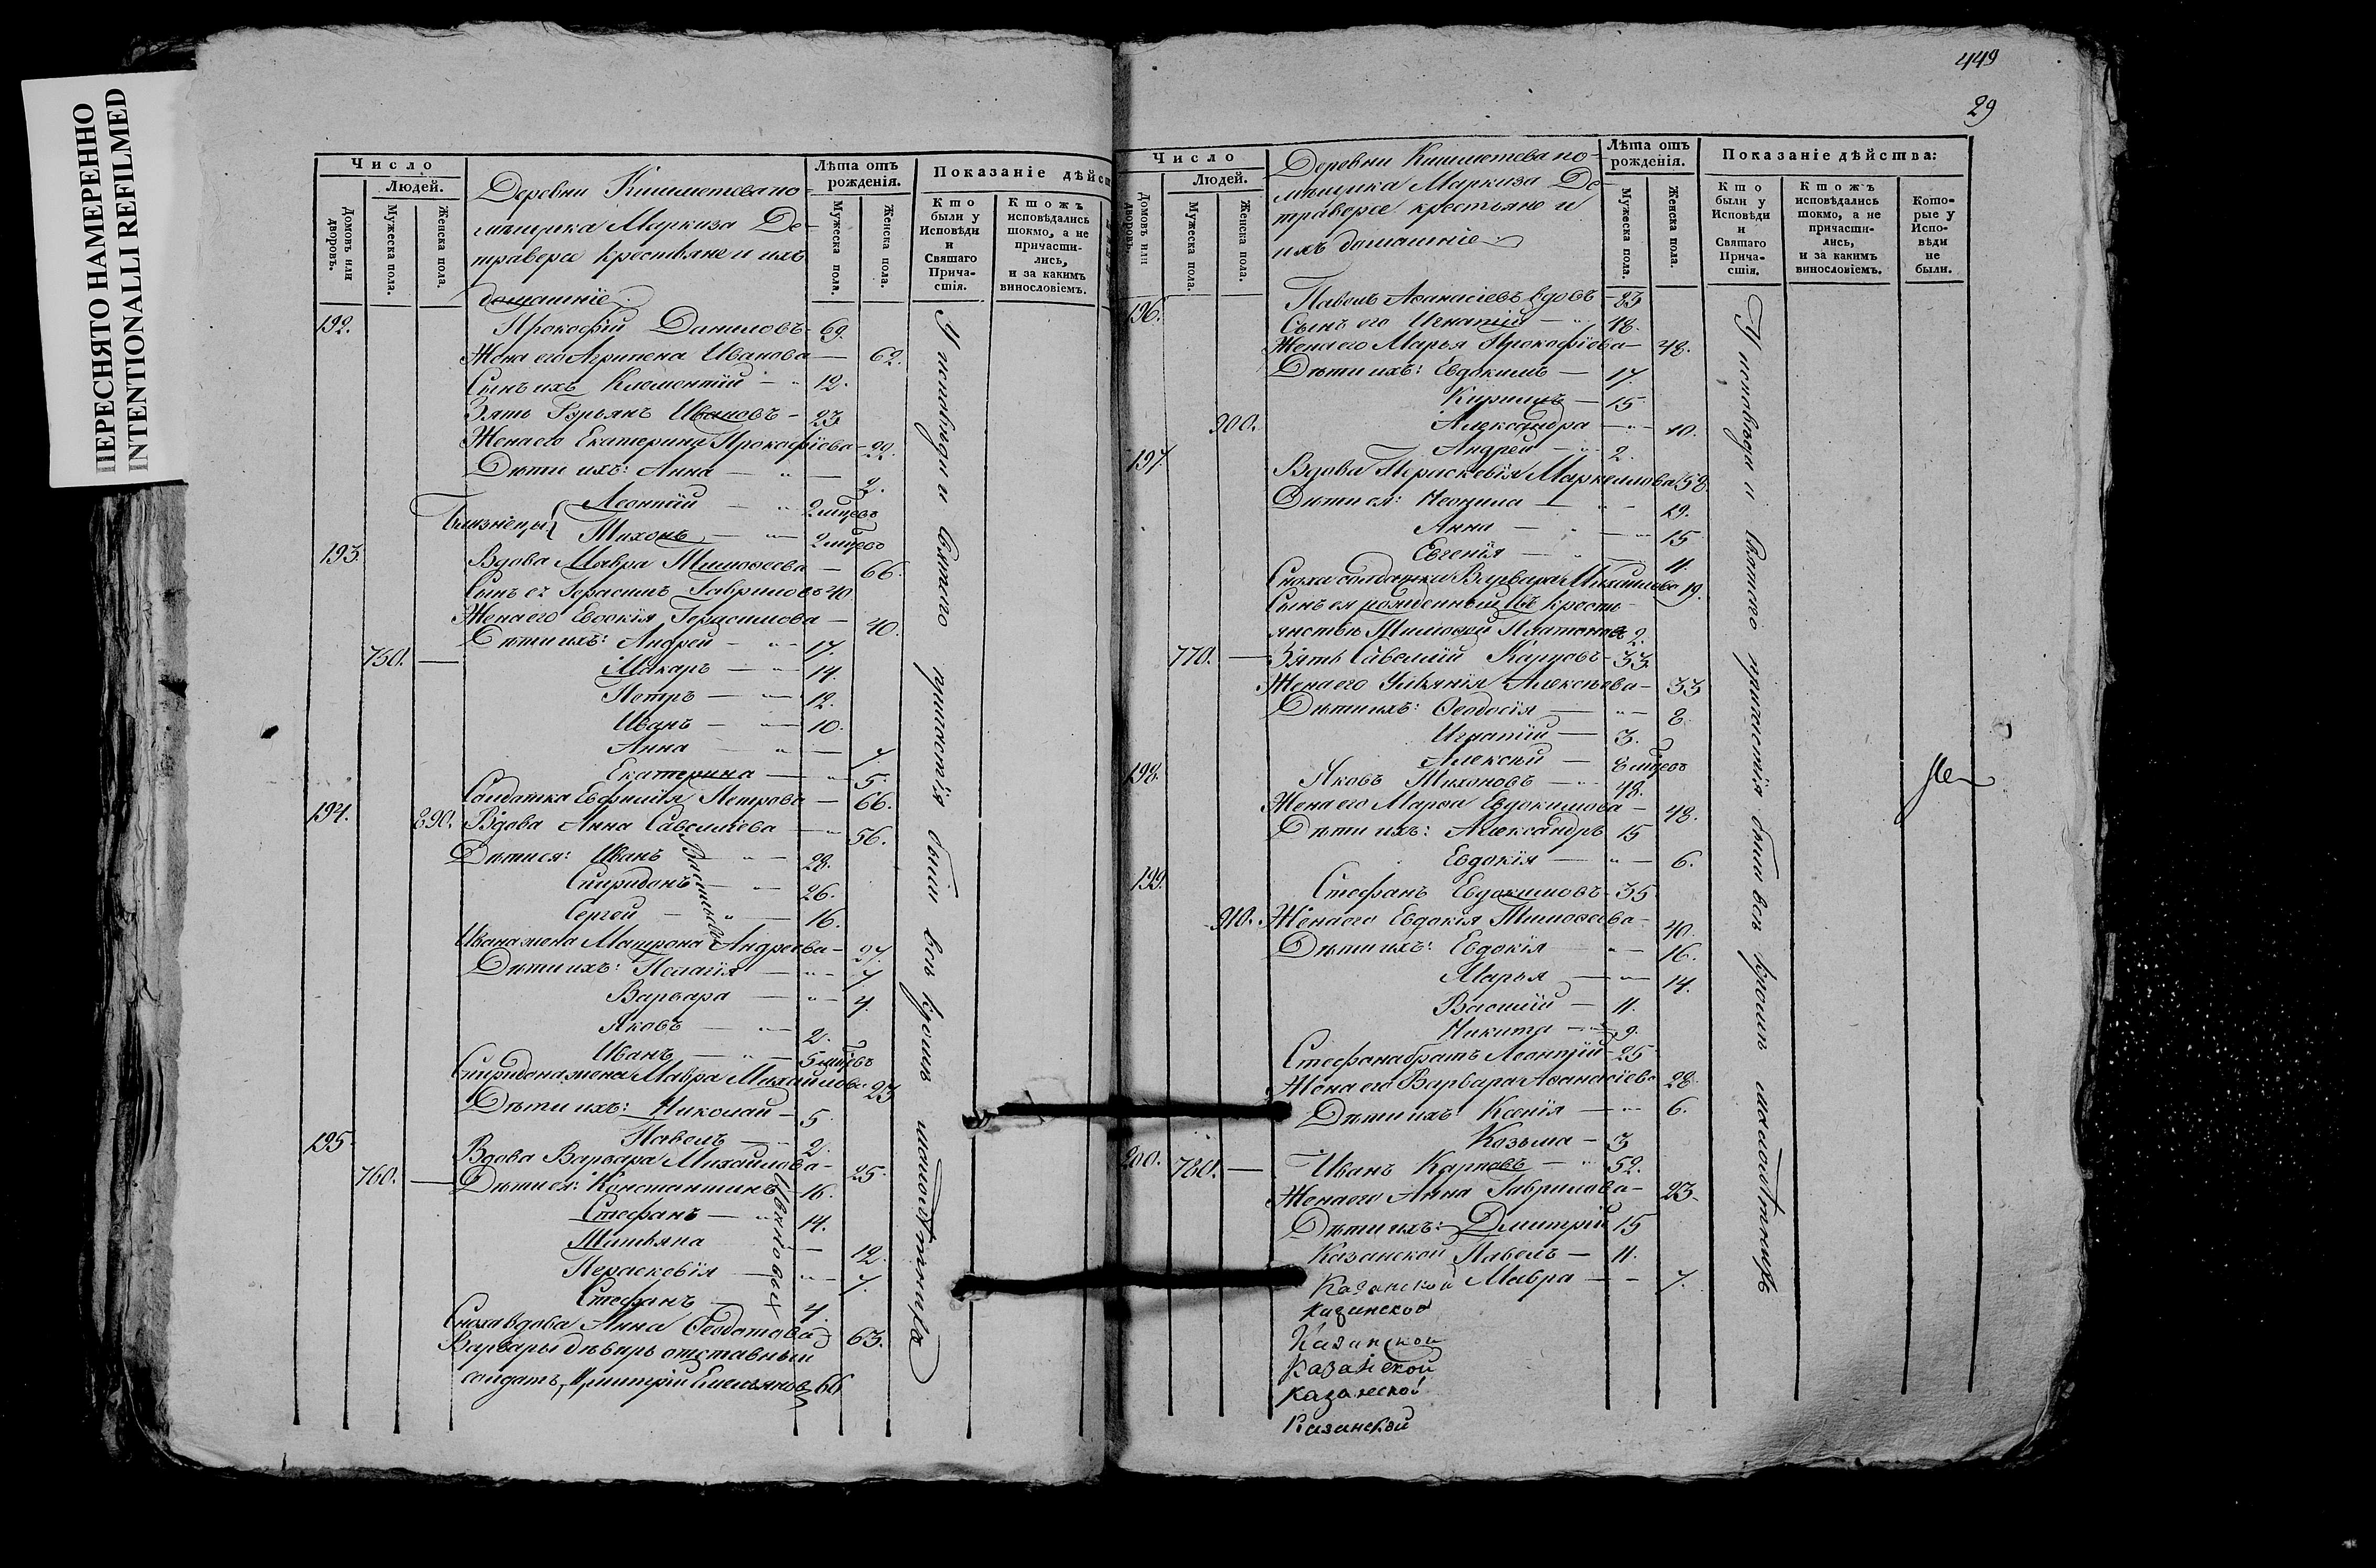 ПЕРЕСНЯТО НАМЕРЕННО
INTENTIONALLI REFILMED
Число
Людей.
Домовъ или дворовъ.
Мужеска пола.
Женска пола.
Деревни Кишметева по-
мѣщика Маркиза Де-
траверсе крестьяне и ихъ
домашніе
Лѣта отъ рожденія.
Мужеска пола.
Женска пола.
Показаніе дѣйст
Кто были у Исповѣди и Святаго Прича-стія.
Ктожъ исповѣдались токмо, а не причасти-лись, и за какимъ винословіемъ.
192. Прокофій Даниловъ 69.
Жена его Агрипена Иванова 62.
Сынъ ихъ Клементій 12.
Зять Гурьянъ Ивановъ 23
Жена его Екатерина Прокофіева 22.
Дѣти ихъ: Анна 2.
Близнецы Леонтій 2 мцевъ
Тихонъ 2 мцевъ
193. Вдова Мавра Тимофеева 66.
Сынъ ея Герасимъ Гавриловъ 40
Жена его Евдокія Герасимова 40.
Дѣти ихъ: Андрей 17.
750. Макаръ 14.
Петръ 12.
Иванъ 10.
Анна 7
Екатерина 5.
Солдатка Евфимія Петрова 66.
194. 890. Вдова Анна Савельева 56.
Дѣти ея: Иванъ 28.
Спиридонъ 26.
Сергей 16.
Васильевы
Ивана жена Матрона Андреева 27.
Дѣти ихъ: Пелагія 7
Варвара 4.
Яковъ 2.
Иванъ 5 мцевъ
Спиридона жена Мавра Михайлова 23
Дѣти ихъ: Николай 5
Павелъ 2.
195. Вдова Варвара Михайлова 25.
760. Дѣти ея: Константинъ 16.
Стефанъ 14.
Татьяна 12.
Параскевія 7.
Стефанъ 4.
Сноха вдова Анна Феодотова 63.
Варвары дѣверь отставный
солдатъ, Дмитрій Емельяновъ 66
У исповѣди и святаго причастія были всѣ кромѣ малолѣтнихъ
449
29
Число
Людей.
Домовъ или дворовъ.
Мужеска пола.
Женска пола.
Деревни Кишметева по-
мѣщика Маркиза Де-
траверсе крестьяне и
ихъ домашніе
Лѣта отъ рожденія.
Мужеска пола.
Женска пола.
Показаніе дѣйства:
Кто были у Исповѣди и Святаго Прича-стія.
Ктожъ исповѣдались токмо, а не причасти-лись, и за какимъ винословіемъ.
Кото-рые у Испо-вѣди не были.
196. Павелъ Афанасіевъ вдовъ 83
Сынъ его Игнатій 48.
Жена его Марья Прокофіева 48.
Дѣти ихъ: Евдокимъ 17.
Кирилъ 15
900. Александра 10.
Андрей 2.
197. Вдова Параскевія Маркеллова 58
Дѣти ея: Неонила 19.
Анна 15
Евгенія 11.
Сноха солдатка Варвара Михайлова 19.
Сынъ ея рожденный въ кресть-
янствѣ Тимофей Платоновъ 2.
770. Зять Савелій Карповъ 33
Жена его Уліянія Алексѣева 33
Дѣти ихъ: Феодосія 8
Игнатій 3.
Алексѣй 8 мцевъ
198. Яковъ Тихоновъ 48.
Жена его Марфа Евдокимова 48.
Дѣти ихъ: Александръ 15
Евдокія 6.
199. Стефанъ Евдокимовъ 35
910. Жена его Евдокія Тимофеева 40.
Дѣти ихъ: Евдокія 16.
Марья 14.
Василій 11.
Никита 9.
Стефана братъ Леонтій 25
Жена его Варвара Афанасіева 28.
Дѣти ихъ: Ксенія 6.
Козьма 3
200. 780. Иванъ Карповъ 52.
Жена его Анна Гаврилова 23.
Дѣти ихъ: Дмитрій 15
Казанской Павелъ 11.
Казанской Мавра 7.
Казанской
Казанской
Казанской
Казанской
Казанской
У исповѣди и святаго причастія были всѣ кромѣ малолѣтнихъ